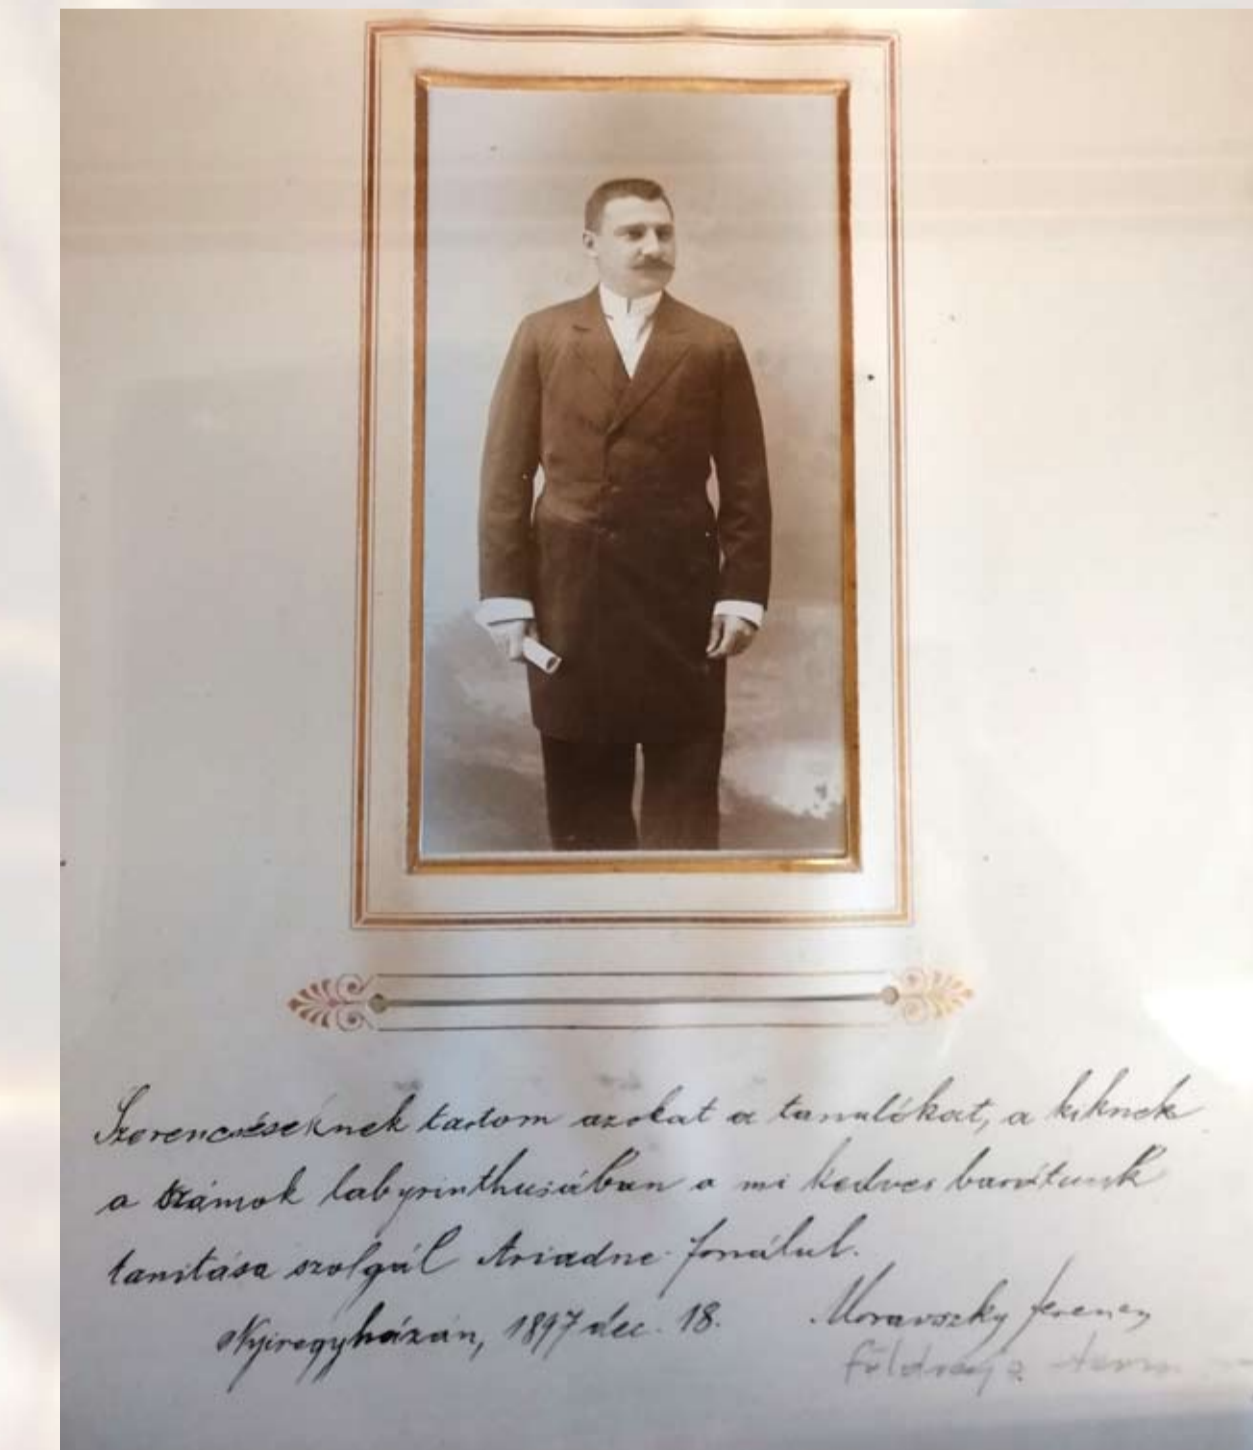 Szerencséseknek tartom azokat a tanulókat, a kiknek
a számok labyrinthusában a mi kedves barátunk
tanitása szolgál Ariadne fonálul.
Nyiregyházán, 1897 dec. 18. Moravszky Ferencz